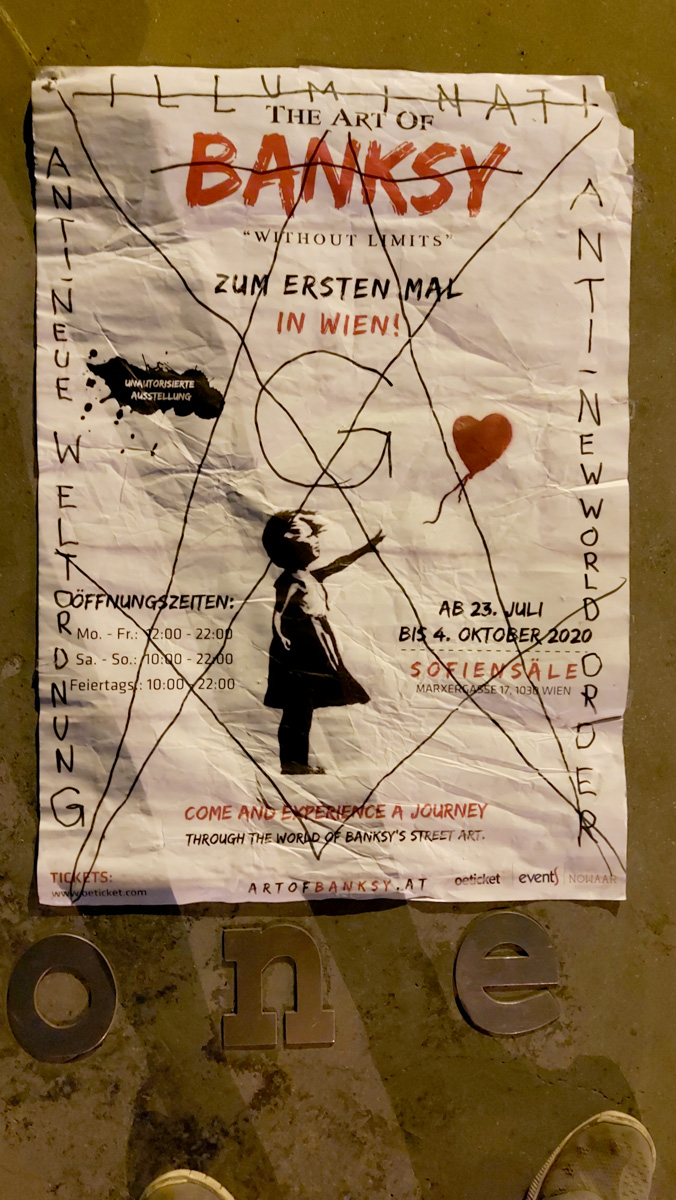 ILLUMINATI
THE ART OF
BANKSY
"WITHOUT LIMITS"
ZUM ERSTEN MAL
IN WIEN!
ANTI-NEUE WELTORDNUNG
ANTI-NEWWORLDORDER
UNAUTORISIERTE
AUSSTELLUNG
G
ÖFFNUNGSZEITEN:
Mo. - Fr.: 12:00 - 22:00
Sa. - So.: 10:00 - 22:00
Feiertags.: 10:00 - 22:00
AB 23. JULI
BIS 4. OKTOBER 2020
SOFIENSÄLE
MARXERGASSE 17, 1030 WIEN
COME AND EXPERIENCE A JOURNEY
THROUGH THE WORLD OF BANKSY'S STREET ART.
TICKETS:
www.oeticket.com
ARTOFBANKSY.AT
oeticket
events
NOWAAR
one